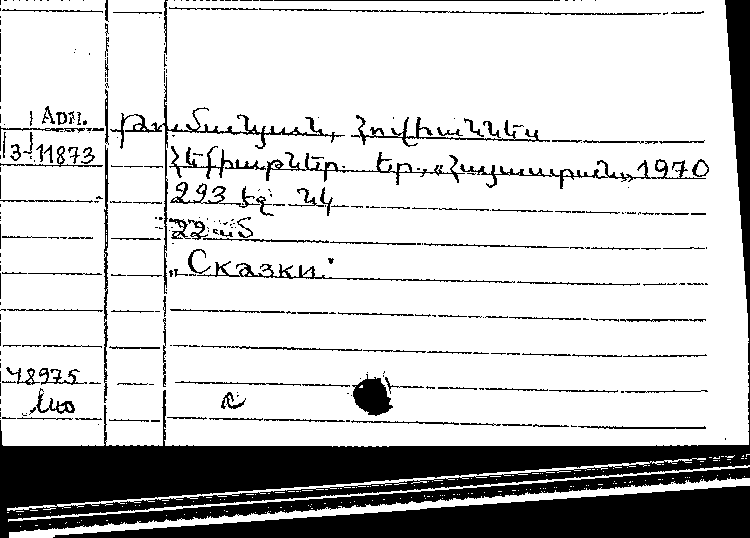 Арм. Թումանյան, Հովհաննես
3-11873 Հեքիաթներ. Եր., «Հայաստան», 1970
293 էջ նկ
22 սմ
„Сказки."
48975